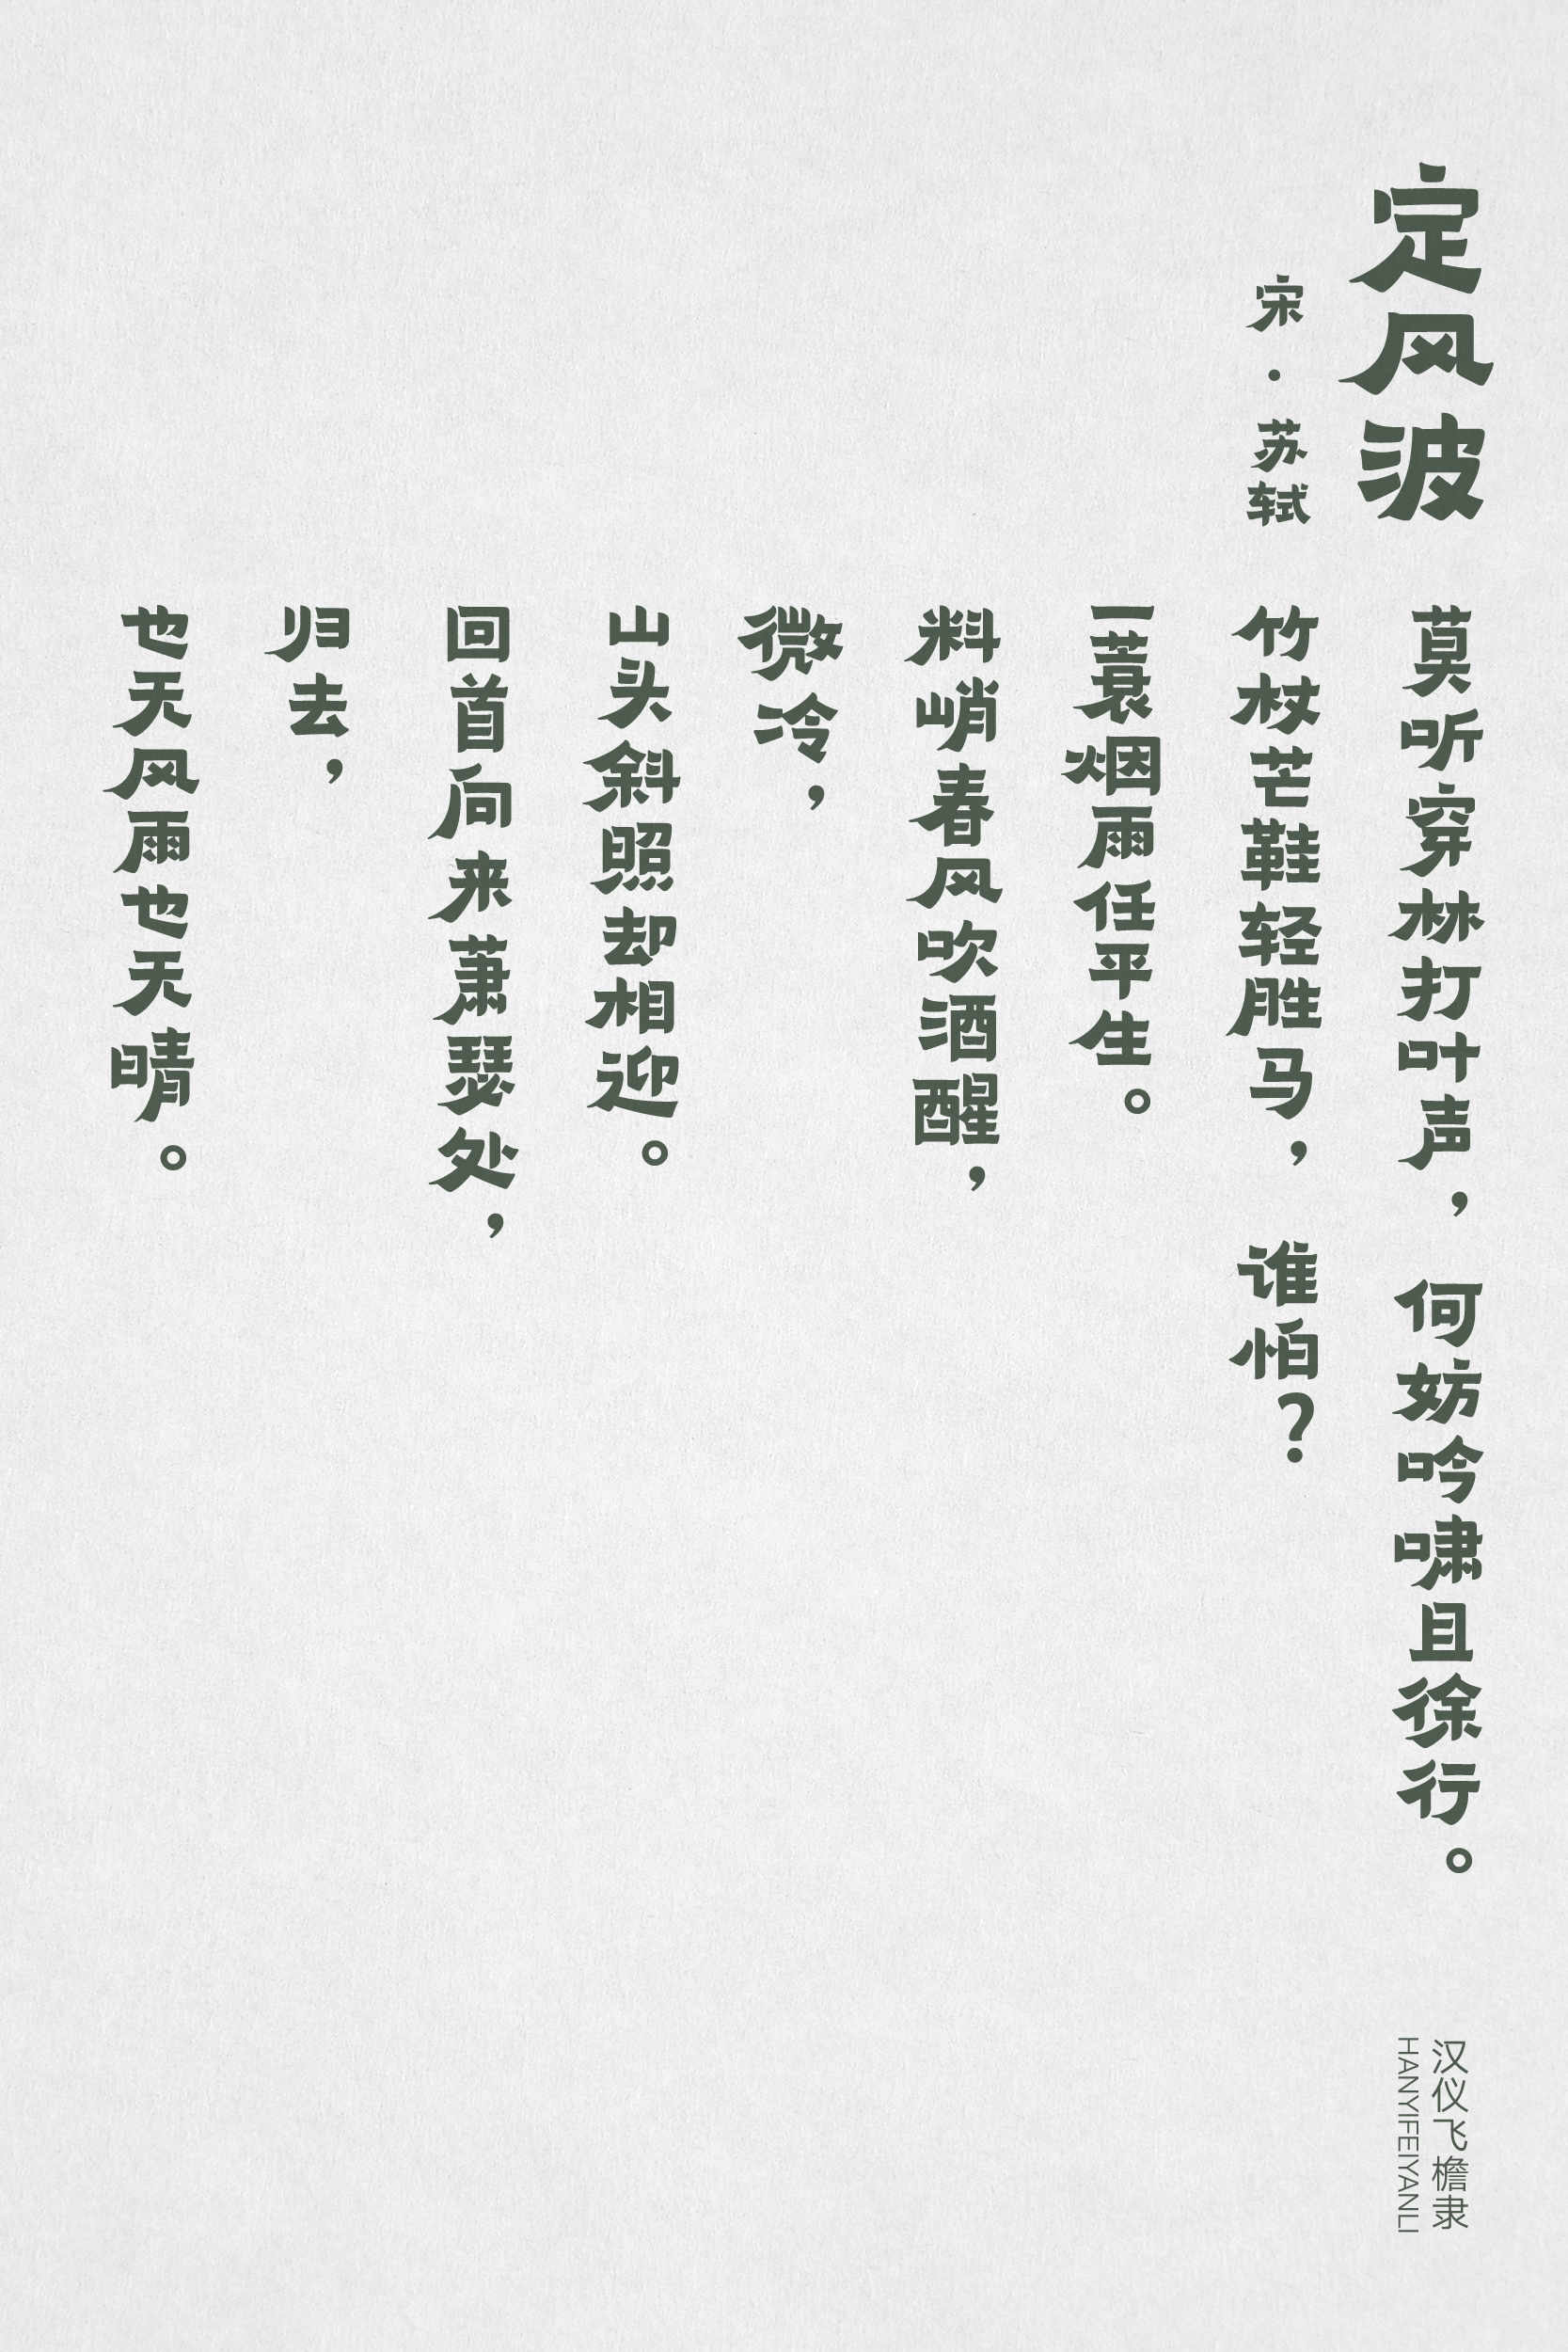 定风波
宋·苏轼
莫听穿林打叶声，何妨吟啸且徐行。
竹杖芒鞋轻胜马，谁怕？
一蓑烟雨任平生。
料峭春风吹酒醒，
微冷，
山头斜照却相迎。
回首向来萧瑟处，
归去，
也无风雨也无晴。
汉仪飞檐隶
HANYIFEIYANLI